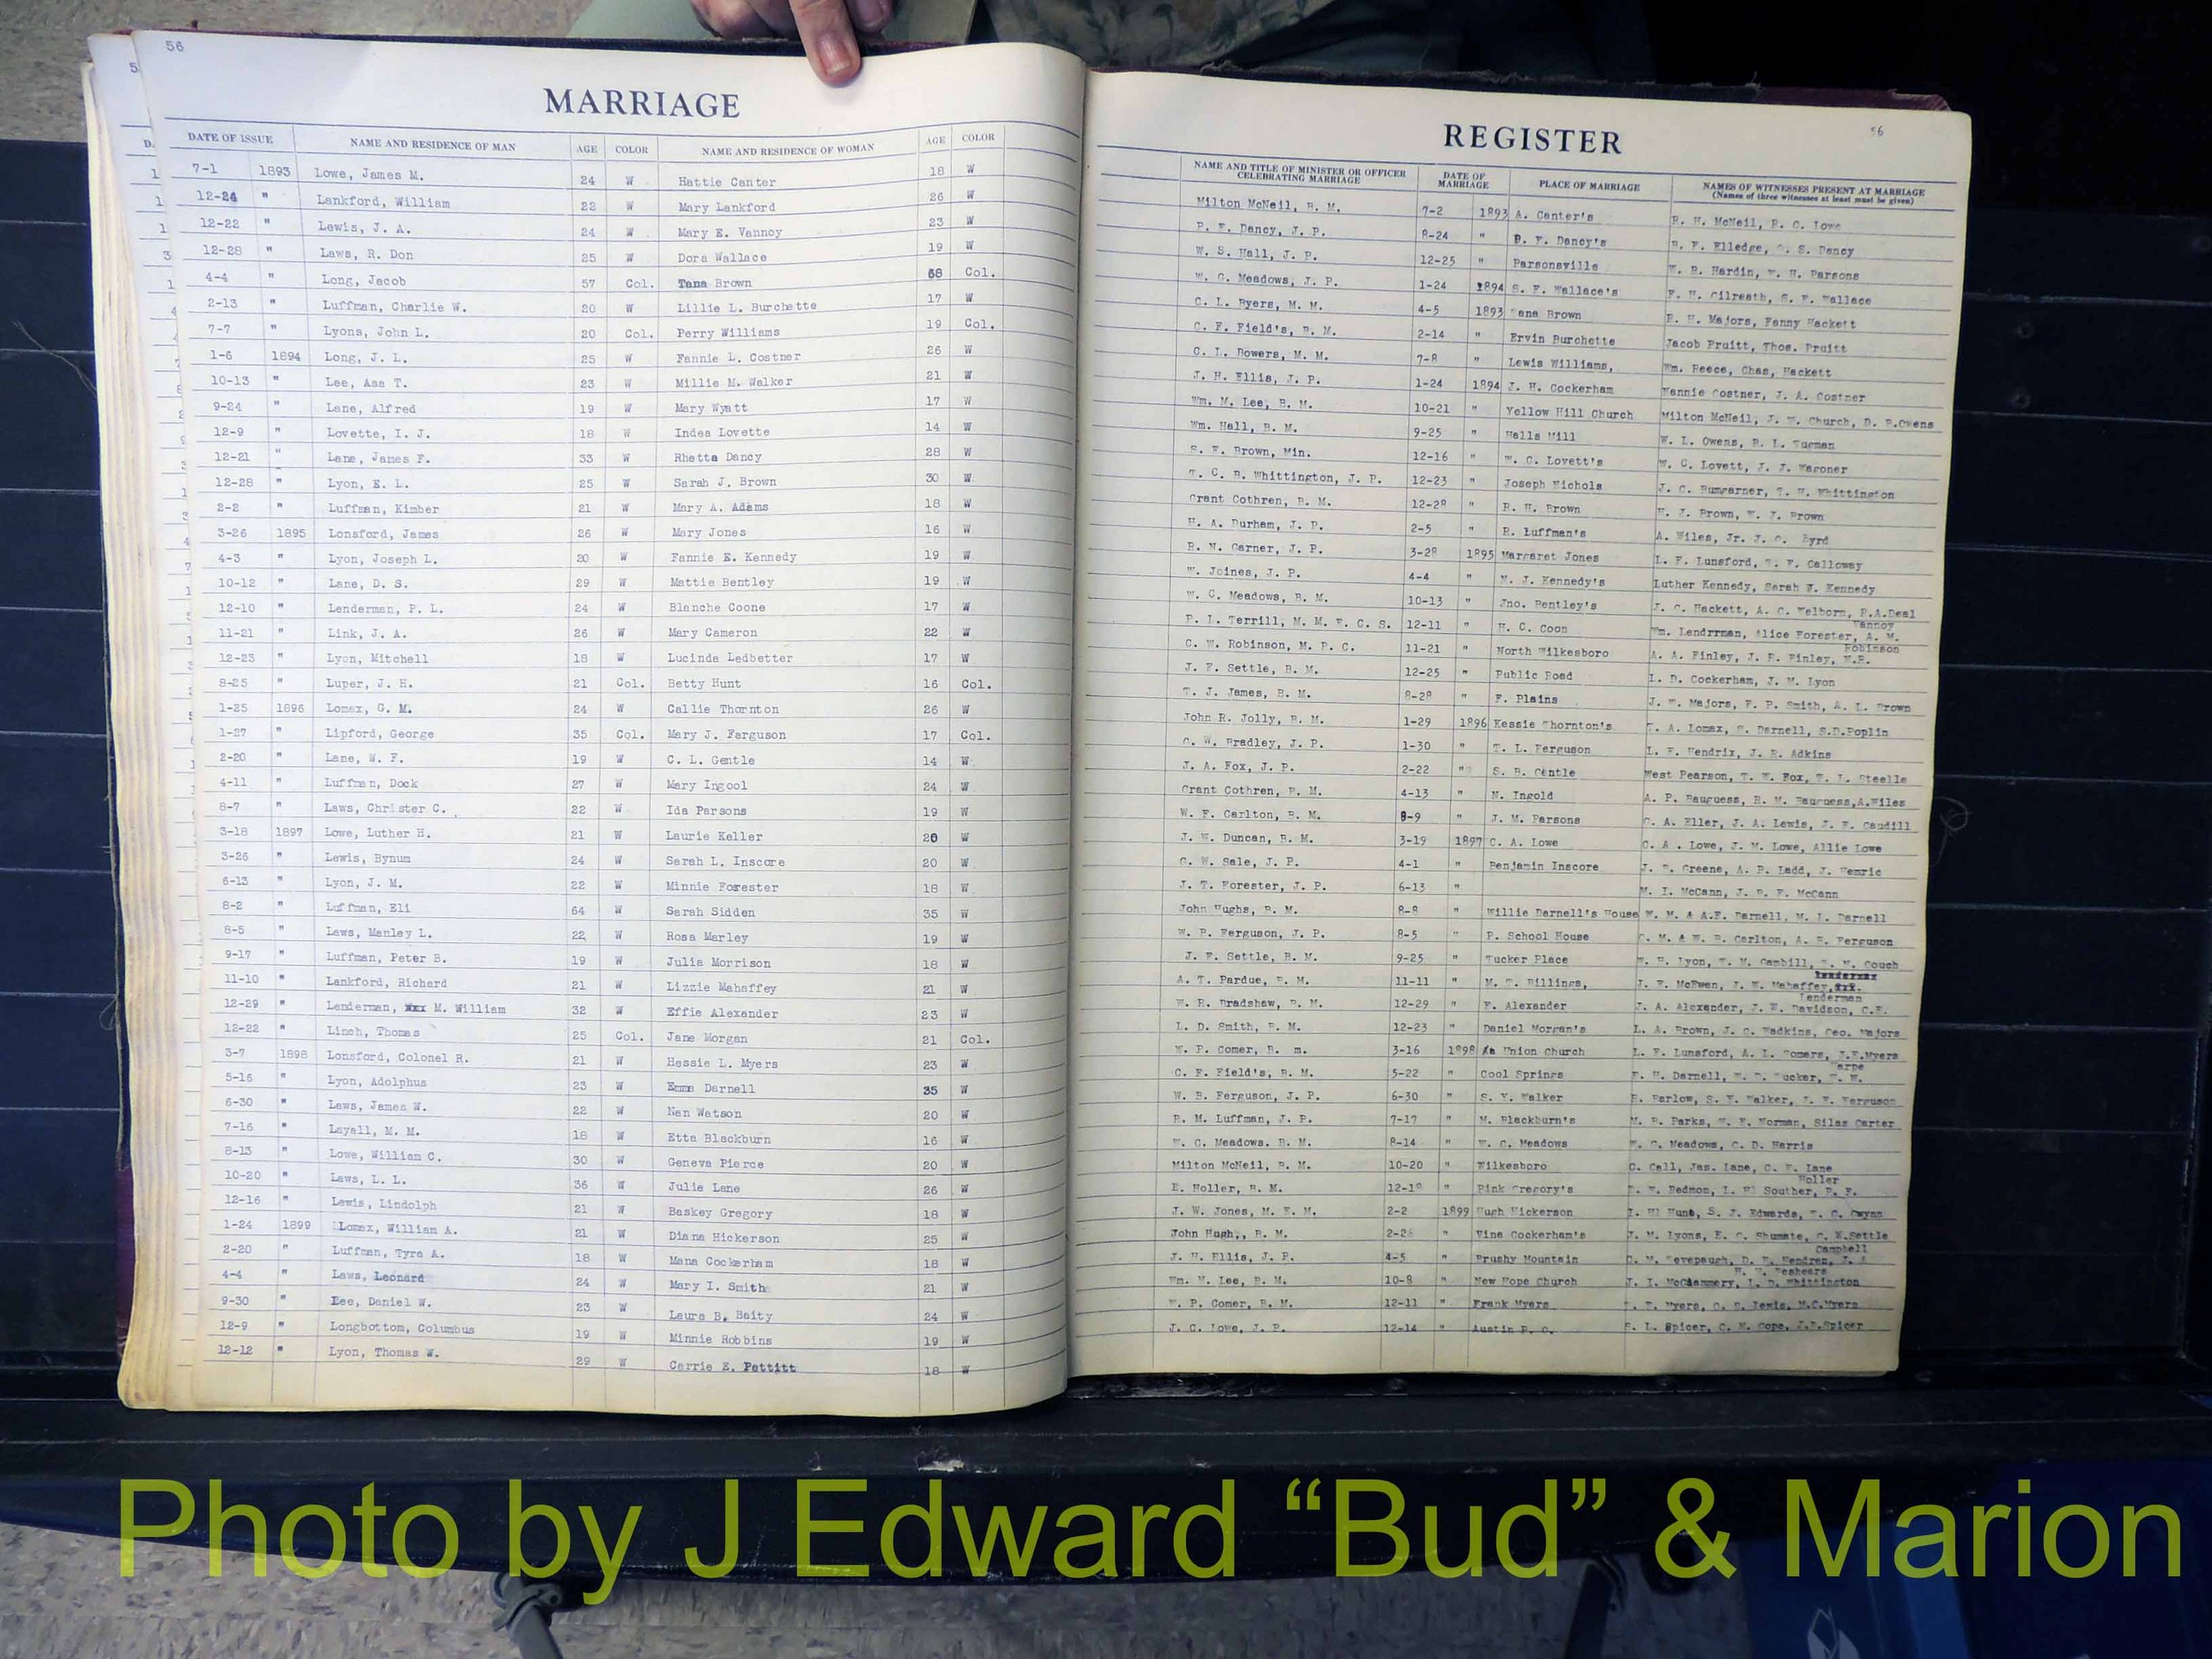 56
5
MARRIAGE
DATE OF ISSUE NAME AND RESIDENCE OF MAN AGE COLOR NAME AND RESIDENCE OF WOMAN AGE COLOR
7-1 1893 Lowe, James M. 24 W Hattie Canter 18 W
12-24 " Lankford, William 22 W Mary Lankford 26 W
12-22 " Lewis, J. A. 24 W Mary E. Vannoy 23 W
12-28 " Laws, R. Don 25 W Dora Wallace 19 W
4-4 " Long, Jacob 57 Col. Tana Brown 68 Col.
2-13 " Luffman, Charlie W. 20 W Lillie L. Burchette 17 W
7-7 " Lyons, John L. 20 Col. Perry Williams 19 Col.
1-6 1894 Long, J. L. 25 W Fannie L. Costner 26 W
10-13 " Lee, Asa T. 23 W Millie M. Walker 21 W
9-24 " Lane, Alfred 19 W Mary Wyatt 17 W
12-9 " Lovette, I. J. 18 W Indea Lovette 14 W
12-21 " Lane, James F. 33 W Rhetta Dancy 28 W
12-28 " Lyon, E. L. 25 W Sarah J. Brown 30 W
2-2 " Luffman, Kimber 21 W Mary A. Adams 18 W
3-26 1895 Lonsford, James 26 W Mary Jones 16 W
4-3 " Lyon, Joseph L. 20 W Fannie E. Kennedy 19 W
10-12 " Lane, D. S. 29 W Mattie Bentley 19 W
12-10 " Lenderman, P. L. 24 W Blanche Coone 17 W
11-21 " Link, J. A. 26 W Mary Cameron 22 W
12-23 " Lyon, Mitchell 18 W Lucinda Ledbetter 17 W
8-25 " Luper, J. H. 21 Col. Betty Hunt 16 Col.
1-25 1896 Lomax, G. M. 24 W Callie Thornton 26 W
1-27 " Lipford, George 35 Col. Mary J. Ferguson 17 Col.
2-20 " Lane, W. F. 19 W C. L. Gentle 14 W
4-11 " Luffman, Dock 27 W Mary Ingool 24 W
8-7 " Laws, Christer C. 22 W Ida Parsons 19 W
3-18 1897 Lowe, Luther H. 21 W Laurie Keller 20 W
3-26 " Lewis, Bynum 24 W Sarah L. Inscore 20 W
6-13 " Lyon, J. M. 22 W Minnie Forester 18 W
8-2 " Luffman, Eli 64 W Sarah Sidden 35 W
8-5 " Laws, Manley L. 22 W Rosa Marley 19 W
9-17 " Luffman, Peter B. 19 W Julia Morrison 18 W
11-10 " Lankford, Richard 21 W Lizzie Mahaffey 21 W
12-29 " Lenderman, M. William 32 W Effie Alexander 23 W
12-22 " Linch, Thomas 25 Col. Jane Morgan 21 Col.
3-7 1898 Lonsford, Colonel R. 21 W Hessie L. Myers 23 W
5-16 " Lyon, Adolphus 23 W Emma Darnell 35 W
6-30 " Laws, James W. 22 W Nan Watson 20 W
7-16 " Layall, M. M. 18 W Etta Blackburn 16 W
8-13 " Lowe, William C. 30 W Geneva Pierce 20 W
10-20 " Laws, L. L. 36 W Julie Lane 26 W
12-16 " Lewis, Lindolph 21 W Baskey Gregory 18 W
1-24 1899 Lomax, William A. 21 W Diana Hickerson 25 W
2-20 " Luffman, Tyra A. 18 W Mana Cockerham 18 W
4-4 " Laws, Leonard 24 W Mary I. Smith 21 W
9-30 " Lee, Daniel W. 23 W Laura B. Baity 24 W
12-9 " Longbottom, Columbus 19 W Minnie Robbins 19 W
12-12 " Lyon, Thomas W. 29 W Carrie E. Pettitt 18 W
REGISTER
56
NAME AND TITLE OF MINISTER OR OFFICER CELEBRATING MARRIAGE DATE OF MARRIAGE PLACE OF MARRIAGE NAMES OF WITNESSES PRESENT AT MARRIAGE
(Names of three witnesses at least must be given)
Milton McNeil, B. M. 7-2 1893 A. Canter's R. H. McNeil, P. C. Lowe
P. F. Dancy, J. P. 8-24 " P. F. Dancy's B. F. Elledge, S. Dancy
W. S. Hall, J. P. 12-25 " Parsonsville W. R. Hardin, W. H. Parsons
W. C. Meadows, J. P. 1-24 1894 S. F. Wallace's F. H. Gilreath, S. F. Wallace
C. L. Byers, M. M. 4-5 1893 Tana Brown R. H. Majors, Fanny Hackett
C. F. Field's, B. M. 2-14 " Ervin Burchette Jacob Pruitt, Thos. Pruitt
C. L. Bowers, M. M. 7-8 " Lewis Williams, Wm. Reece, Chas, Hackett
J. H. Ellis, J. P. 1-24 1894 J. H. Cockerham Nannie Costner, J. A. Costner
Wm. M. Lee, B. M. 10-21 " Yellow Hill Church Milton McNeil, J. W. Church, D. R.Owens
Wm. Hall, B. M. 9-25 " Halls Mill W. L. Owens, R. L. Turman
S. F. Brown, Min. 12-16 " W. C. Lovett's W. C. Lovett, J. J. Waroner
T. C. B. Whittington, J. P. 12-23 " Joseph Nichols J. C. Bumgarner, T. H. Whittington
Grant Cothren, B. M. 12-28 " R. H. Brown H. J. Brown, W. J. Brown
H. A. Durham, J. P. 2-5 " R. Luffman's A. Wiles, Jr. J. C. Byrd
R. N. Garner, J. P. 3-28 1895 Margaret Jones L. F. Lunsford, T. F. Calloway
W. Joines, J. P. 4-4 " N. J. Kennedy's Luther Kennedy, Sarah W. Kennedy
W. C. Meadows, B. M. 10-13 " Jno. Bentley's J. C. Hackett, A. C. Welborn, R.A.Deal
P. L. Terrill, M. M. E. C. S. 12-11 " H. C. Coon Wm. Lendrrman, Alice Forester, A. M. Vannoy
C. W. Robinson, M. P. C. 11-21 " North Wilkesboro A. A. Finley, J. R. Finley, Robinson
J. F. Settle, B. M. 12-25 " Public Road L. D. Cockerham, J. M. Lyon
T. J. James, B. M. 8-28 " F. Plains J. W. Majors, F. P. Smith, A. L. Brown
John R. Jolly, B. M. 1-29 1896 Kessie Thornton's T. A. Lomax, S. Darnell, S.D.Poplin
C. W. Bradley, J. P. 1-30 " T. L. Ferguson L. F. Hendrix, J. R. Adkins
J. A. Fox, J. P. 2-22 " S. B. Gentle West Pearson, T. W. Fox, T. L. Steelle
Grant Cothren, B. M. 4-13 " N. Ingold A. P. Bauguess, R. M. Bauguess,A.Wiles
W. F. Carlton, B. M. 8-9 " J. M. Parsons C. A. Eller, J. A. Lewis, J. F. Caudill
J. W. Duncan, B. M. 3-19 1897 C. A. Lowe C. A. Lowe, J. M. Lowe, Allie Lowe
C. W. Sale, J. P. 4-1 " Benjamin Inscore J. T. Greene, A. P. Ladd, J. Hemric
J. T. Forester, J. P. 6-13 " M. I. McCann, J. P. F. McCann
John Hughs, B. M. 8-8 " Willie Darnell's House W. M. & A.F. Darnell, M. L. Darnell
W. B. Ferguson, J. P. 8-5 " P. School House C. M. & W. B. Carlton, A. B. Ferguson
J. F. Settle, B. M. 9-25 " Tucker Place W. H. Lyon, T. M. Gambill, T. M. Couch
A. T. Pardue, B. M. 11-11 " M. T. Billings, J. F. McEwen, J. W. Mahaffey,
W. R. Bradshaw, B. M. 12-29 " F. Alexander J. A. Alexander, J. W. Davidson, C.F. Lenderman
L. D. Smith, B. M. 12-23 " Daniel Morgan's L. A. Brown, J. C. Wadkins, Geo. Majors
W. P. Comer, B. m. 3-16 1898 Union Church L. F. Lunsford, A. L. Somers, J.F.Myers
C. F. Field's, B. M. 5-22 " Cool Springs Darnell, Tucker,
W. B. Ferguson, J. P. 6-30 " S. Y. Walker Barlow, S. Y. Walker, Ferguson
R. M. Luffman, J. P. 7-17 " M. Blackburn's M. B. Parks, W. F. Norman, Silas Carter
W. C. Meadows. B. M. 8-14 " W. C. Meadows W. C. Meadows, C. D. Harris
Milton McNeil, B. M. 10-20 " Wilkesboro C. Call, Jas. Lane, C. F. Lane
E. Holler, B. M. 12-18 " Pink Gregory's Redmon, Souther, Holler
J. W. Jones, M. E. M. 2-2 1899 Hugh Hickerson Hunt, S. J. Edwards, Gwynn
John Hugh,, B. M. 2-26 " Vina Cockerham's J. M. Lyons, E. C. Shumate, C. W.Settle
J. H. Ellis, J. P. 4-5 " Brushy Mountain Hendren, Campbell
Wm. M. Lee, B. M. 10-8 " New Hope Church J. I. McGlammery, L. D. Whittington
W. P. Comer, B. M. 12-11 " Frank Myers Myers, Lewis, M.C.Myers
J. C. Lowe, J. P. 12-14 " Austin P. O. S. L. Spicer, C. M. Cope, J.P.Spicer
Photo by J Edward “Bud” & Marion